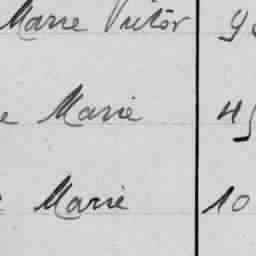 Marie Victor 9
e Marie 45
Marie 10